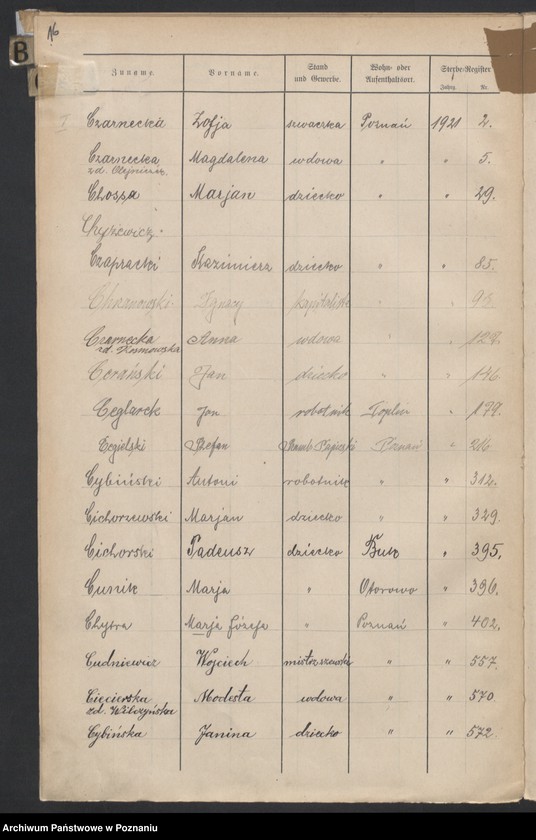 16
B
Zuname. Vorname. Stand und Gewerbe. Wohn- oder Aufenthaltsort. Sterbe-Register Jahrg. Nr.
I Czarnecka Zofja szwaczka Poznań 1921 2.
Czarnecka Magdalena wdowa " " 5.
zd.
Chosza Marjan dziecko " " 29.
Chyżewicz
Czapracki Kazimierz dziecko " " 85.
Chrzanowski Ignacy kapitalista " 95
Czarnecka Anna wdowa " " 128.
zd. Kosmowska
Cerański Jan dziecko " " 146
Ceglarek Jan robotnik " 179.
Cegielski Stefan Poznań " 216
Cybiński Antoni robotnik " " 312.
Cichorzewski Marjan dziecko " " 329.
Cichorski Tadeusz dziecko Buk " 395.
Cunik Marja " Otorowo " 396.
Chytra Marja Józefa " Poznań " 402.
Cudniewicz Wojciech mistrz szewski " " 557.
Ciecierska Modesta wdowa " " 570
zd. Wilczyńska
Cybińska Janina dziecko " " 572
Archiwum Państwowe w Poznaniu